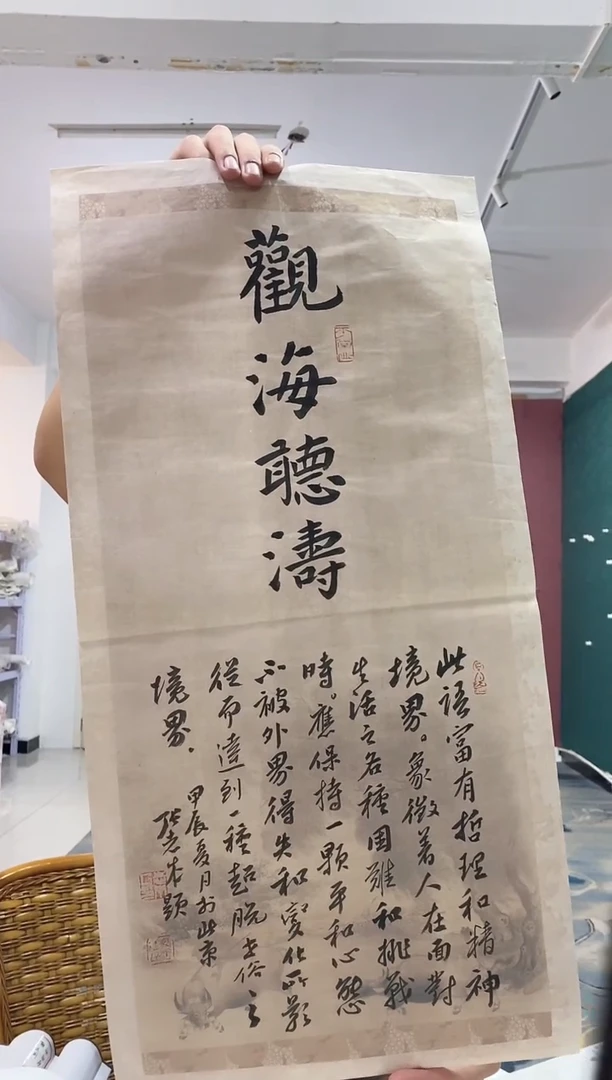 觀海聽濤
此語富有哲理和精神
境界。象徵著人在面對
生活之各種困難和挑戰
時。應保持一顆平和心態
不被外界得失和變化所影
從而達到一種超脫世俗之
境界.
甲辰夏月於北京
題